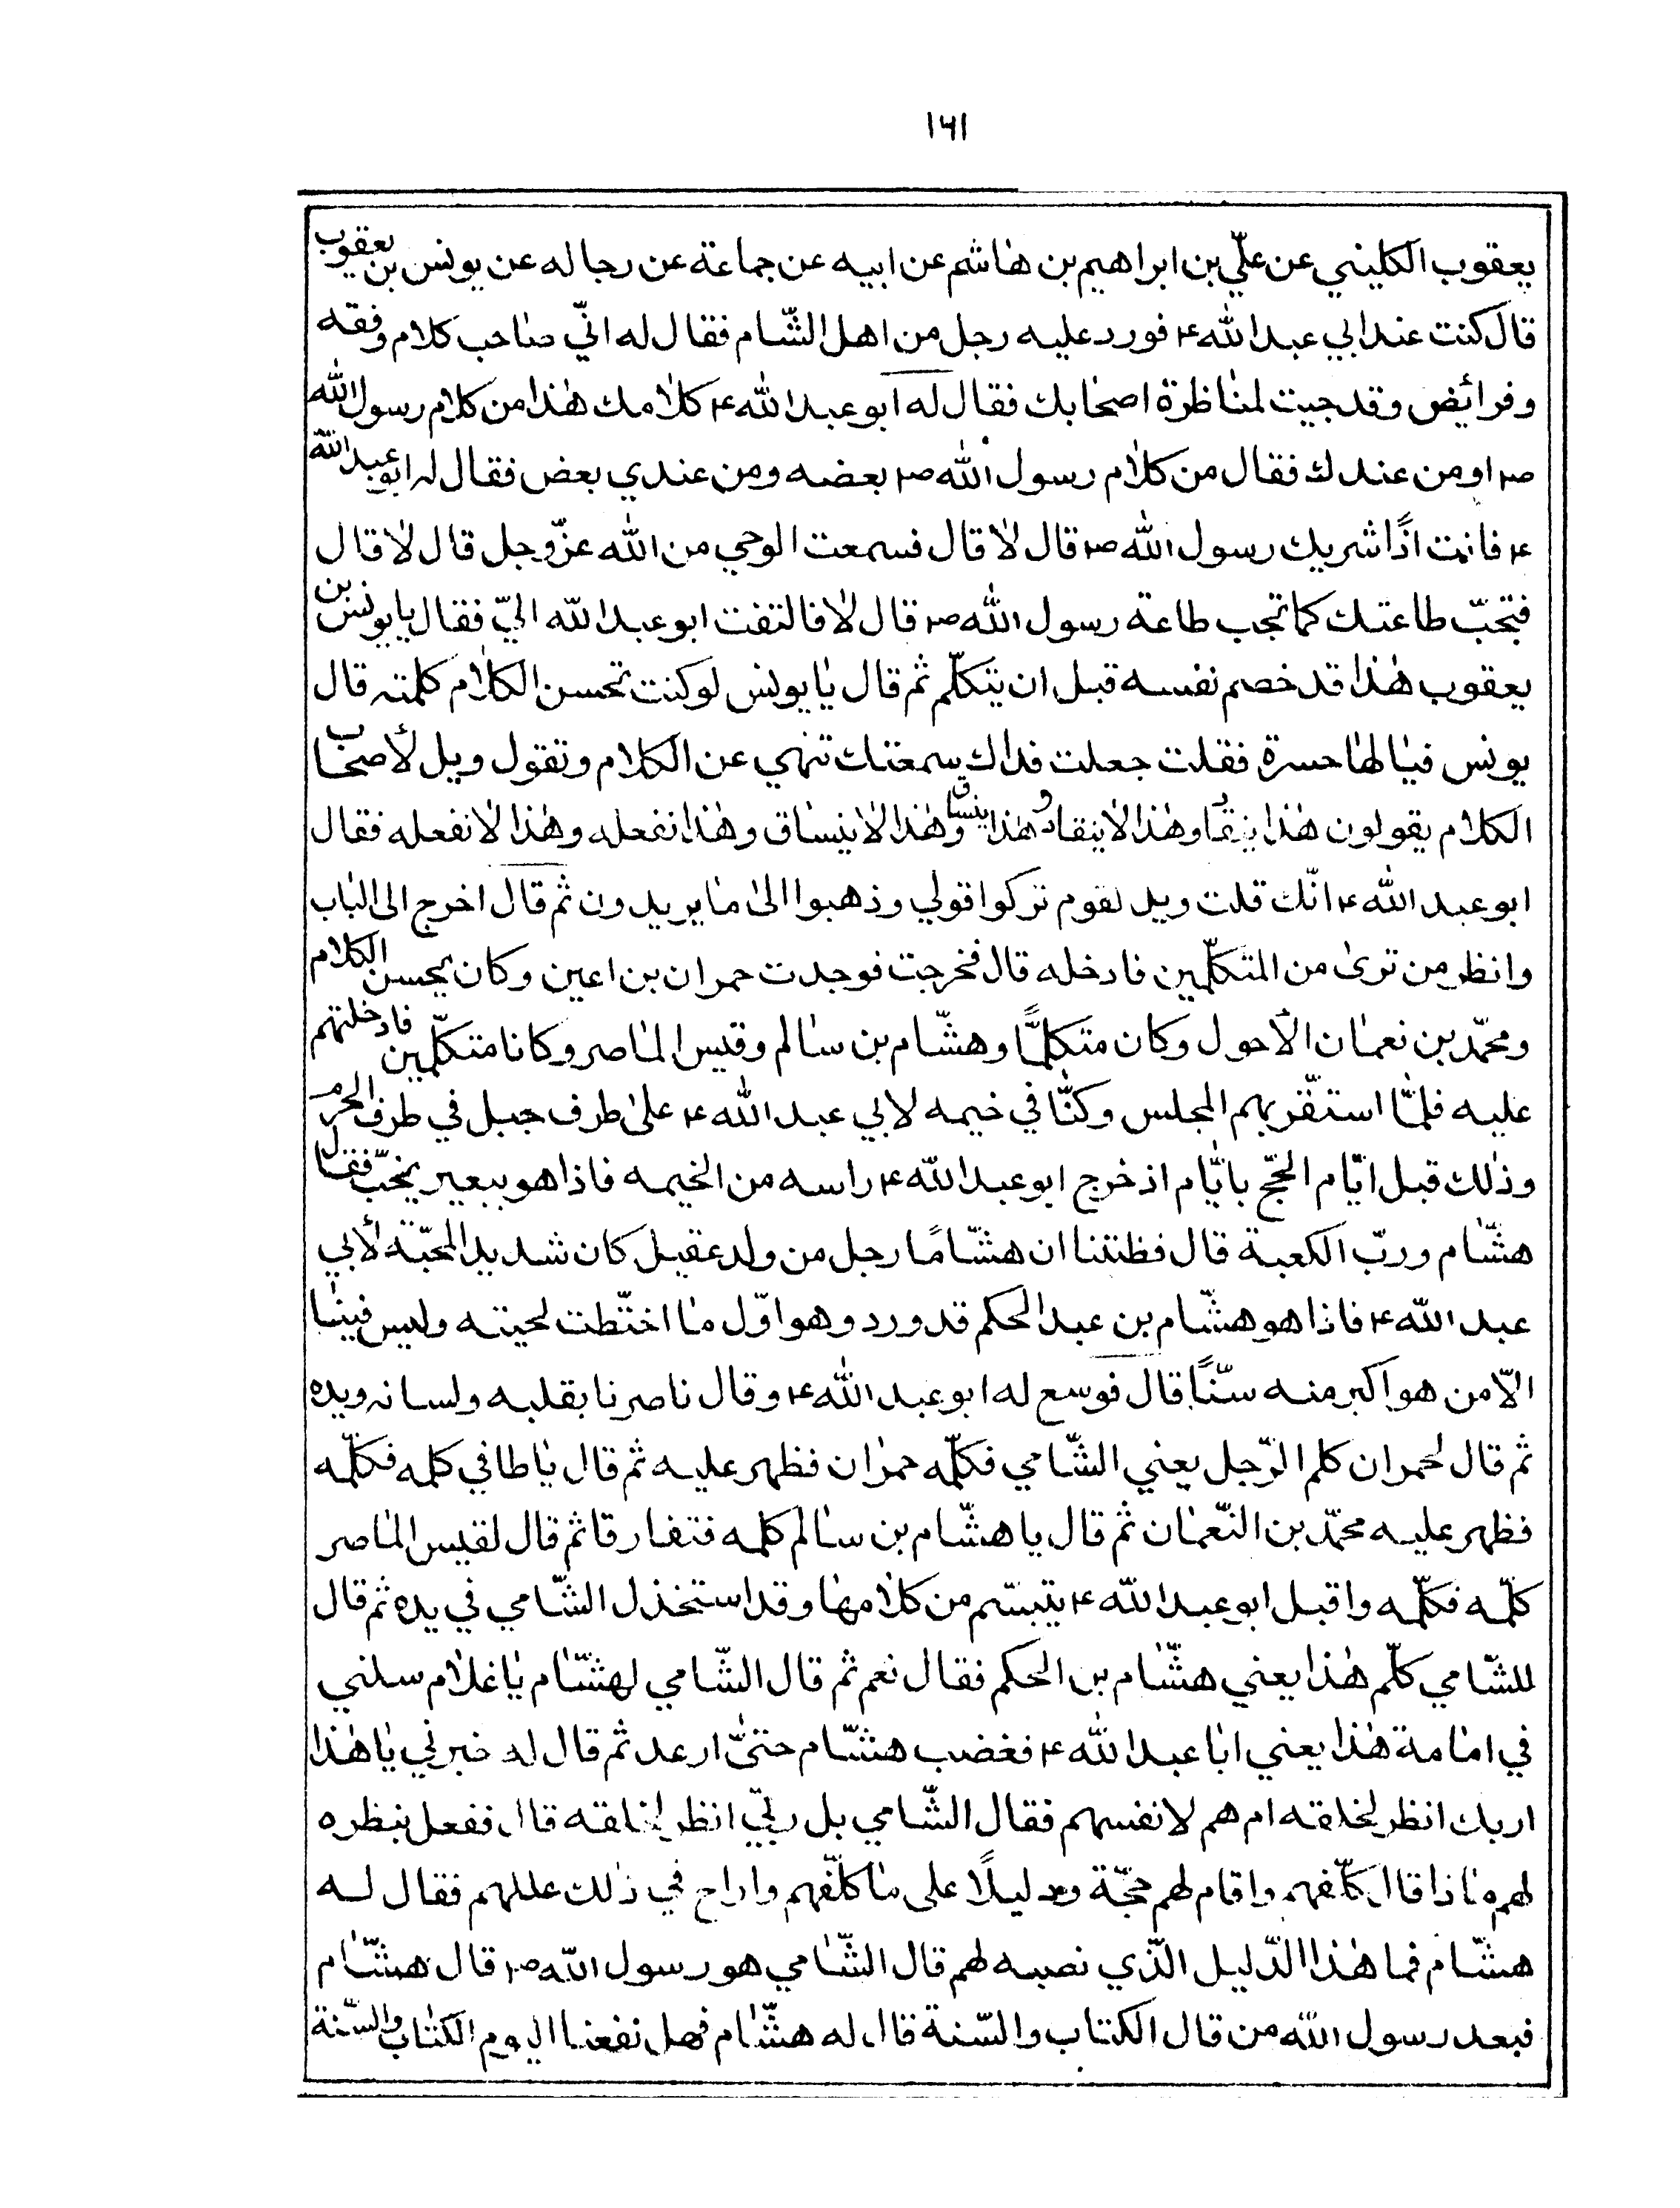 ١٦١
يعقوب الكليني عن عليّ بن ابراهيم بن هاشم عن ابيه عن جماعة عن رجاله عن يونس بن يعقوب
قال كنت عند ابي عبد الله ع فورد عليه رجل من اهل الشّام فقال له انّي صاحب كلام وفقه
وفرائض وقد جيت لمناظرة اصحابك فقال له ابو عبد الله ع كلامك هذا من كلام رسول الله
ص او من عندك فقال من كلام رسول الله ص بعضه ومن عندي بعض فقال له ابو عبد الله
ع فانت اذًا شريك رسول الله ص قال لا قال فسمعت الوحي من الله عزّ وجل قال لا قال
فتجبّ طاعتك كما تجب طاعة رسول الله ص قال لا فالتفت ابو عبد الله اليّ فقال يا يونس بن
يعقوب هذا قد خصم نفسه قبل ان يتكلّم ثم قال يا يونس لو كنت تحسن الكلام كلمته قال
يونس فيا لها حسرة فقلت جعلت فداك سمعتك تنهى عن الكلام وتقول ويل لأصحاب
الكلام يقولون هذا ينقاد وهذا لا ينقاد وهذا ينساق وهذا لا ينساق وهذا نفعله وهذا لا نفعله فقال
ابو عبد الله ع انّك قلت ويل لقوم تركوا قولي وذهبوا الى ما يريدون ثم قال اخرج الى الباب
وانظر من ترى من المتكلّمين فادخله قال فخرجت فوجدت حمران بن اعين وكان يحسن الكلام
ومحمّد بن نعمان الأحول وكان متكلمًّا وهشّام بن سالم وقيس الماصر وكانا متكلّمين فادخلتهم
عليه فلمّا استقّر بهم المجلس وكنّا في خيمه لابي عبد الله ع على طرف جبل في طرف الحرم
وذلك قبل ايّام الحجّ بايّام اذ خرج ابو عبد الله ع راسه من الخيمه فاذا هو ببعير يخبّ فقال
هشّام وربّ الكعبة قال فظننا ان هشّامًا رجل من ولد عقيل كان شديد المحبّة لأبي
عبد الله ع فاذا هو هشّام بن عبد الحكم قد ورد وهو اوّل ما اختّطت لحيته وليس فينا
الاّ من هو اكبر منه سنّاً قال فوسع له ابو عبد الله ع وقال ناصرنا بقلبه ولسانه ويده
ثم قال لحمران كلم الرّجل يعني الشّامي فكلّمه حمران فظهر عليه ثم قال يا طاقي كلمه فكلّمه
فظهر عليه محمّد بن النّعمان ثم قال يا هشّام بن سالم كلمه فتعارقا ثم قال لقيس الماصر
كلّمه فكلّمه واقبل ابو عبد الله ع يتبسّم من كلامهما وقد استخذل الشّامي في يده ثم قال
للشّامي كلّم هذا يعني هشّام بن الحكم فقال نعم ثم قال الشّامي لهشّام يا غلام سلني
في امامة هذا يعني ابا عبد الله ع فغضب هشّام حتىّ ارعد ثم قال له خبرني يا هذا
اربك انظر لخلقه ام هم لانفسهم فقال الشّامي بل ربّي انظر لخلقه قال ففعل بنظره
لهم ماذا قال كلّفهم واقام لهم حجّة ودليلًا على ما كلّفهم وازاح في ذلك عللهم فقال له
هشّام فما هذا الدّليل الذّي نصبه لهم قال الشّامي هو رسول الله ص قال هشّام
فبعد رسول الله من قال الكتاب والسّنة قال له هشّام فهل نفعنا اليوم الكتاب والسّنة